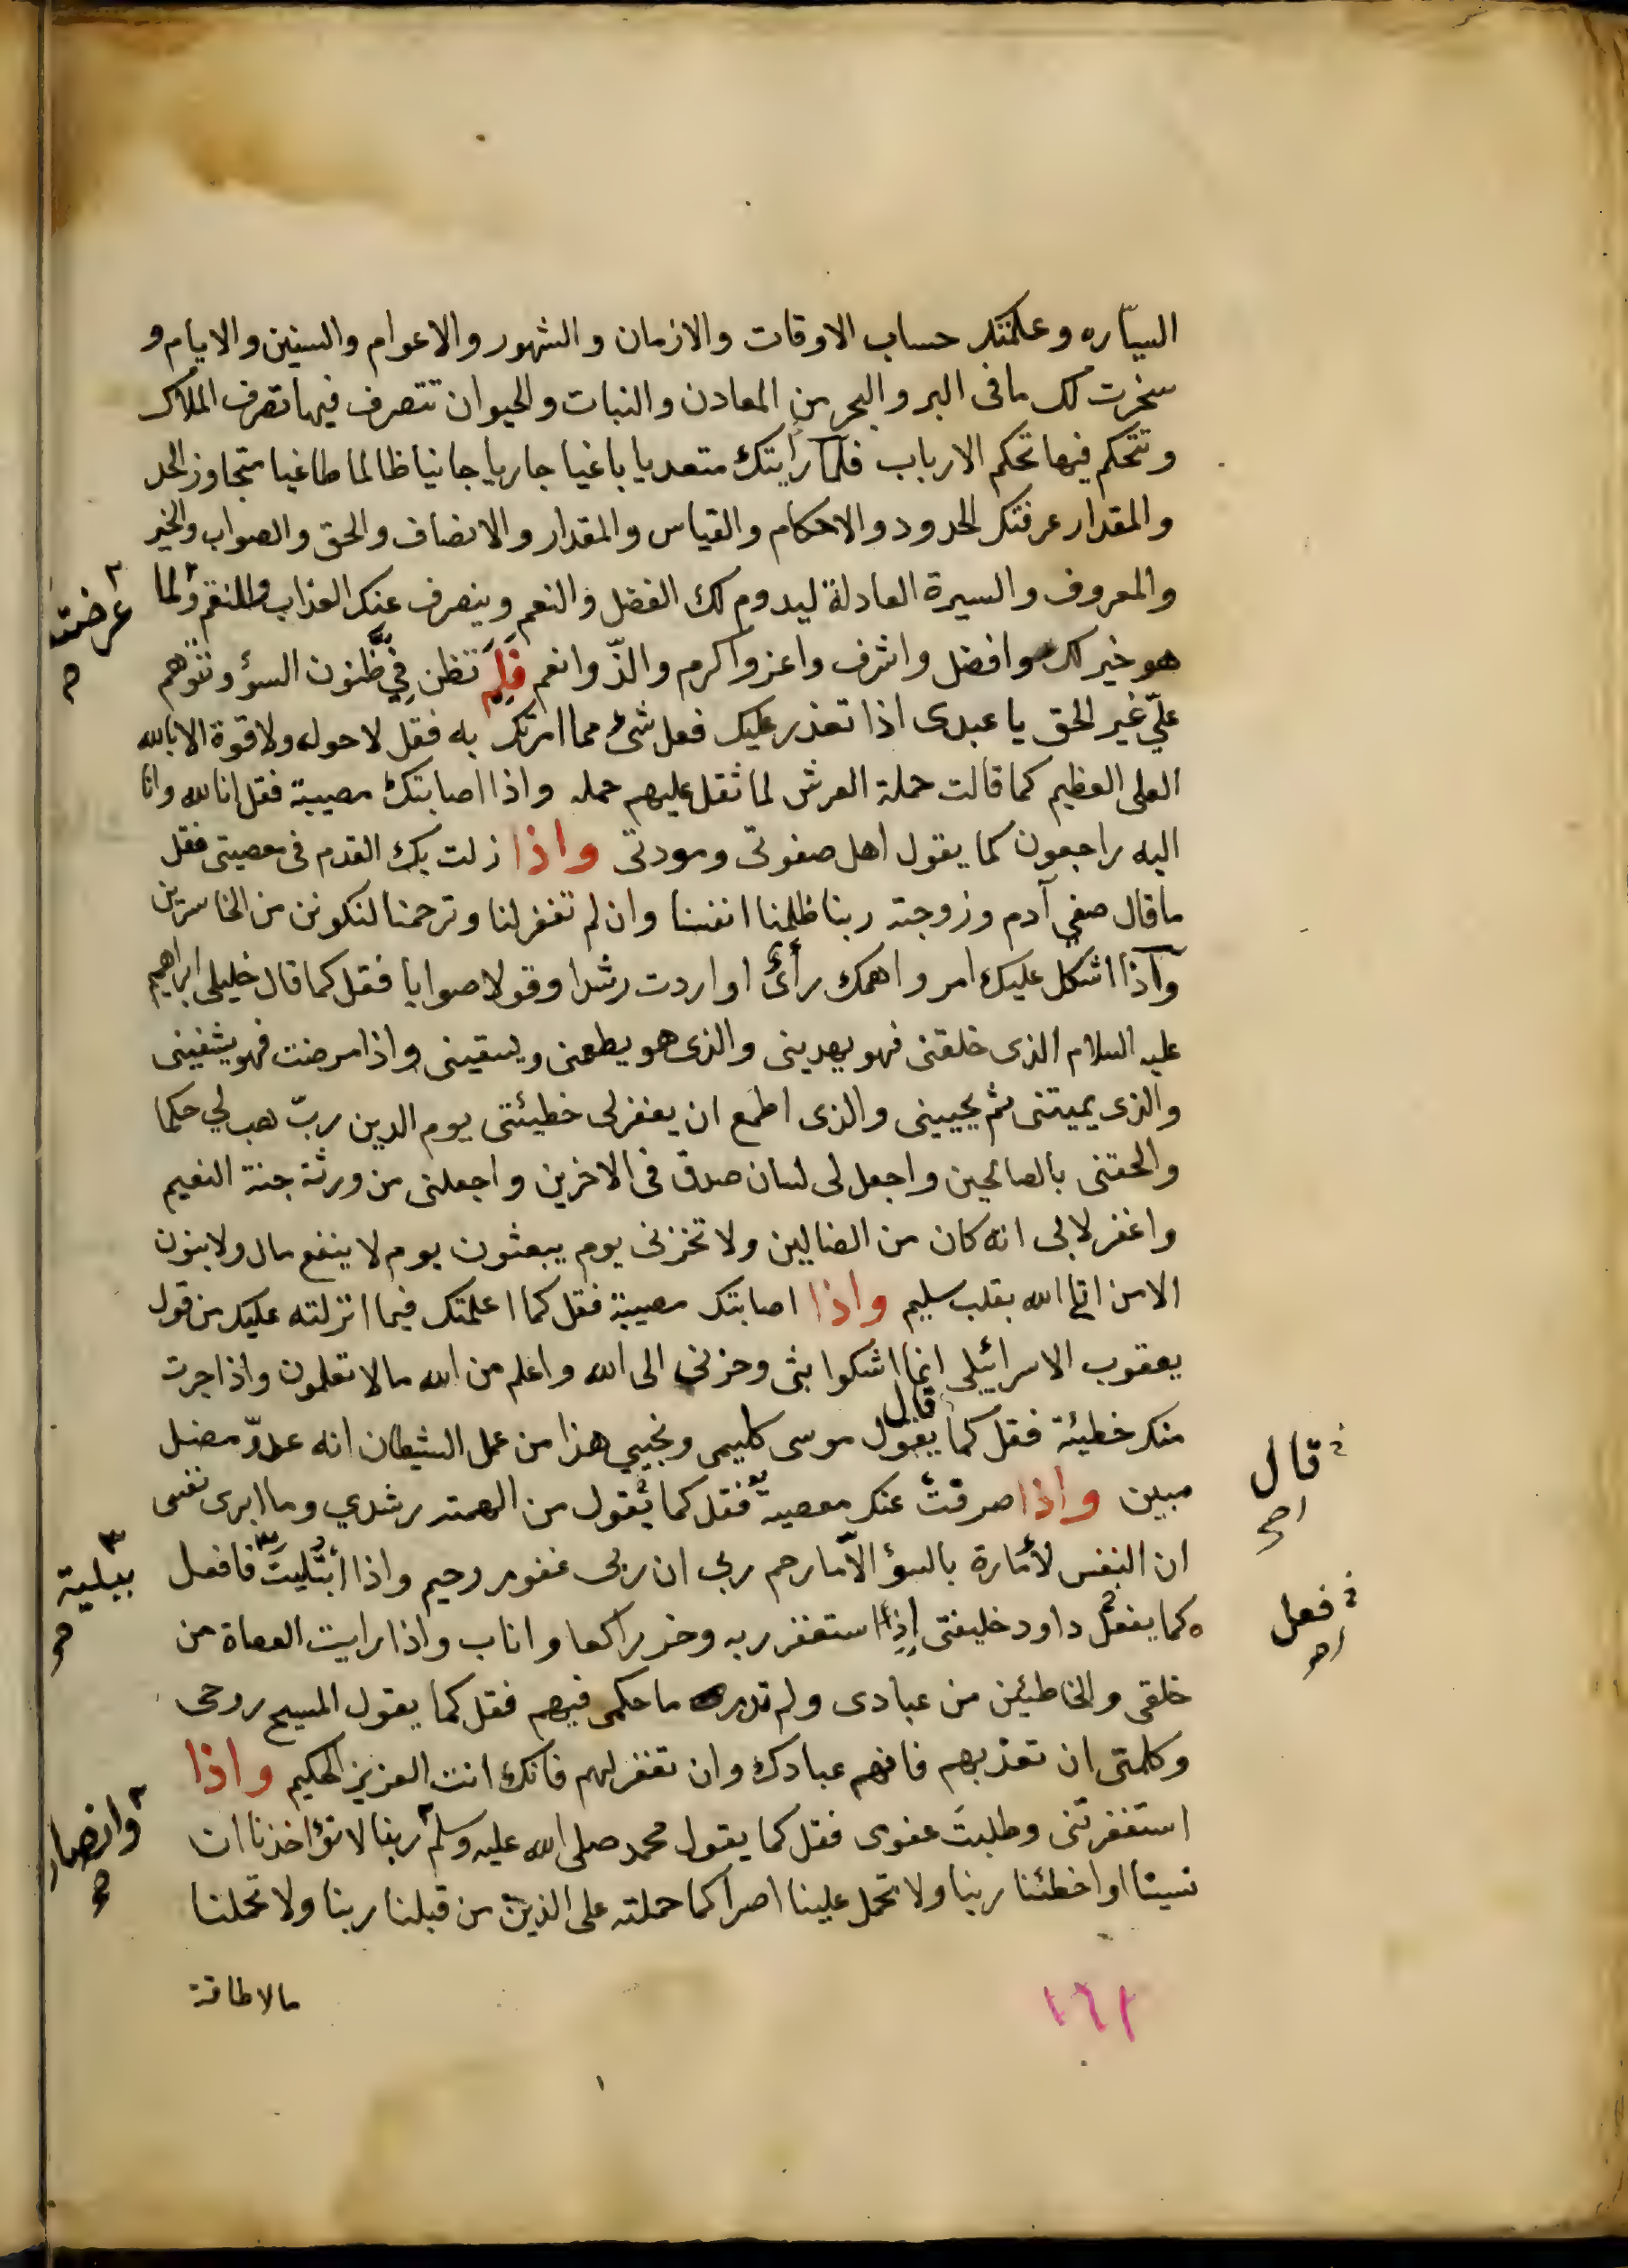 السيّاره وعلمتك حساب الاوقات والازمان والشهور والاعوام والسنين والايام و
سخرت لك مافى البر والبحر من المعادن والنبات والحيوان تتصرف فيها تصرف الملاك
وتتحكم فيها تحكم الارباب فلما رأيتك متعديا باغيا جاريا جانيا ظالما طاغيا متجاوز الحد
والمقدار عرفتك الحدود والاحكام والقياس والمقدار والانصاف والحق والصواب والخير
والمعروف والسيرة العادلة ليدوم لك الفضل والنعم وينصرف عنك العذاب والنقم ولما
عرضت
هو خير لك وافضل واشرف واعز واكرم والذّ وانعم فَلِمَ تظن فِيَّ ظنون السؤ وتتوهم
علَيّ غير الحق يا عبدى اذا تعذر عليك فعل شئ مما امرتك به فقل لا حول ولا قوة الا بالله
العلى العظيم كما قالت حملة العرش لما ثقل عليهم حمله واذا اصابتك مصيبة فقل انا لله وانا
اليه راجعون كما يقول اهل صفوتى ومودتى واذا زلت بك القدم فى معصيتى فقل
ما قال صفي آدم وزوجته ربنا ظلمنا انفسنا وان لم تغفر لنا وترحمنا لنكونن من الخاسرين
واذا اشكل عليك امر واهمك رأى او اردت رشدا وقولا صوابا فقل كما قال خليلى ابراهيم
عليه السلام الذى خلقنى فهو يهدينى والذى هو يطعمنى ويسقينى واذا مرضت فهو يشفينى
والذى يميتنى ثم يحيينى والذى اطمع ان يغفر لى خطيئتى يوم الدين ربّ هب لي حكما
والحقنى بالصالحين واجعل لى لسان صدق فى الاخرين واجعلنى من ورثة جنة النعيم
واغفر لابى انه كان من الضالين ولا تخزنى يوم يبعثون يوم لا ينفع مال ولا بنون
الا من اتى الله بقلب سليم واذا اصابتك مصيبة فقل كما اعلمتك فيما انزلته عليك من قول
يعقوب الاسرائيلى انما اشكوا بثى وحزنى الى الله واعلم من الله مالا تعلمون واذا جرت
قال
منك خطيئة فقل كما يقول موسى كليمى ونجيي هذا من عمل الشيطان انه عدوّ مضل
قال
صح
مبين واذا صرفتُ عنك معصية فقل كما يقول من الهمته رشدي وما ابرى نفسى
ان النفس لأمّارة بالسؤ الاّ ما رحم ربى ان ربى غفور رحيم واذا ابتُليتَ فافعل
ببلية
صح
كما يفعل داود خليفتى إذا استغفر ربه وخر راكعا واناب واذا رايت العصاة من
فعل
صح
خلقى والخاطئين من عبادى ولم تدر ما حكمى فيهم فقل كما يقول المسيح روحى
وكلمتى ان تعذبهم فانهم عبادك وان تغفر لهم فانك انت العزيز الحكيم واذا
استغفرتنى وطلبتَ عفوى فقل كما يقول محمد صلى الله عليه وسلم ربنا لا تؤاخذنا ان
وانصار
صح
نسينا او اخطئنا ربنا ولا تحمل علينا اصرا كما حملته على الذين من قبلنا ربنا ولا تحملنا
مالا طاقة
١٦١